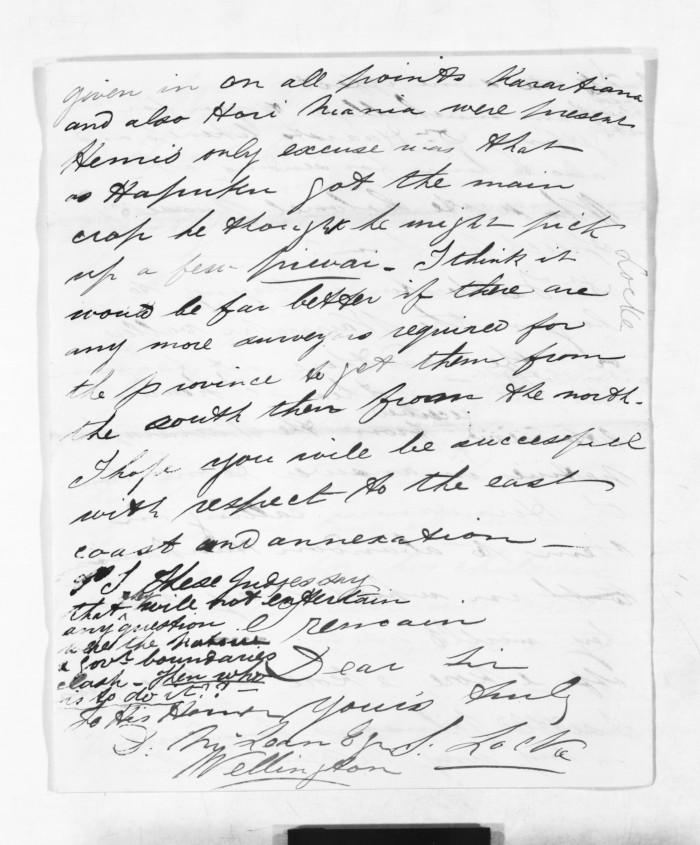 given in on all points Karaitiana
and also Hori Niania were present
Hemis only excuse was that
as Hapuku got the main
crop he thought he might pick
up a few piwai - I think it
would be far better if there are
any more surveyors required for
the province to get them from
the south then from the north -
I hope you will be successful
with respect to the east
coast and annexation -
P S These Judges say
that they will not entertain
any question
where the Native
& Govt boundaries
clash - Then who
is to do it??
I remain
Dear Sir
Yours truly
S. Locke
To His Honor
D. McLean Esqr
Wellington
Locke